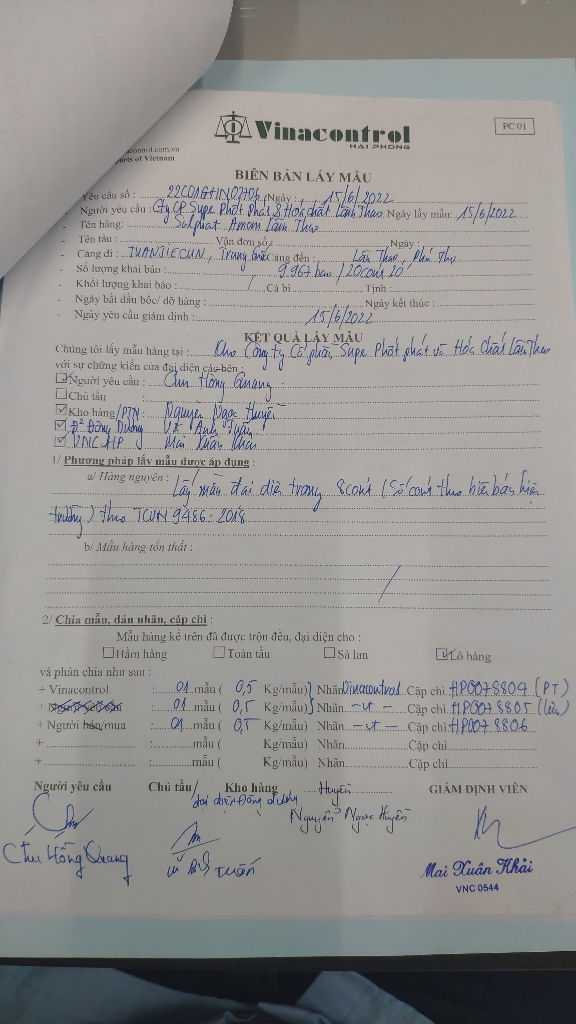 Vinacontrol
HAI PHONG
PC 01
control.com.vn
ports of Vietnam
BIÊN BẢN LẤY MẪU
- Yêu cầu số : Ngày : 15/6/2022
- Người yêu cầu : Cty CP Supe Phốt phát & Hóa chất Lâm Thao Ngày lấy mẫu: 15/6/2022
- Tên hàng: Sulphat Amon Lâm Thao
- Tên tàu : Vận đơn số : Ngày :
- Cảng đi : Trung Quốc Cảng đến : Lâm Thao, Phú Thọ
- Số lượng khai báo : 9.967 bao / 20 cont 20'
- Khối lượng khai báo : / Cả bì Tịnh :
- Ngày bắt đầu bốc/ dỡ hàng : Ngày kết thúc :
- Ngày yêu cầu giám định : 15/6/2022
KẾT QUẢ LẤY MẪU
Chúng tôi lấy mẫu hàng tại : Kho Công ty Cổ phần Supe Phốt phát và Hóa Chất Lâm Thao
với sự chứng kiến của đại diện các bên :
Người yêu cầu : Chu Hồng Quang
Chủ tàu :
Kho hàng/PTN : Nguyễn Ngọc Huyền
Đ² Đông Dương Vũ Anh Tuấn
VNC HP Mai Xuân Khải
1/ Phương pháp lấy mẫu được áp dụng :
a/ Hàng nguyên : Lấy mẫu đại diện trong 8 cont (Số cont theo biên bản hiện
trường) theo TCVN 9486: 2018
b/ Mẫu hàng tổn thất :
/
2/ Chia mẫu, dán nhãn, cặp chì :
Mẫu hàng kể trên đã được trộn đều, đại diện cho :
Hầm hàng Toàn tàu Sà lan Lô hàng
và phân chia như sau :
+ Vinacontrol : 01 mẫu ( 0,5 Kg/mẫu) Nhãn Vinacontrol Cặp chì HP0078804 (PT)
+ : 01 mẫu ( 0,5 Kg/mẫu) Nhãn -nt- Cặp chì HP0078805 (lưu)
+ Người bán/mua : 01 mẫu ( 0,5 Kg/mẫu) Nhãn -nt- Cặp chì HP0078806
+ : mẫu ( Kg/mẫu) Nhãn Cặp chì
+ : mẫu ( Kg/mẫu) Nhãn Cặp chì
Người yêu cầu Chủ tầu/ Kho hàng Huyền GIÁM ĐỊNH VIÊN
đại diện Đông Dương
Nguyễn Ngọc Huyền
Chu Hồng Quang
Vũ Anh Tuấn
Mai Xuân Khải
VNC 0544